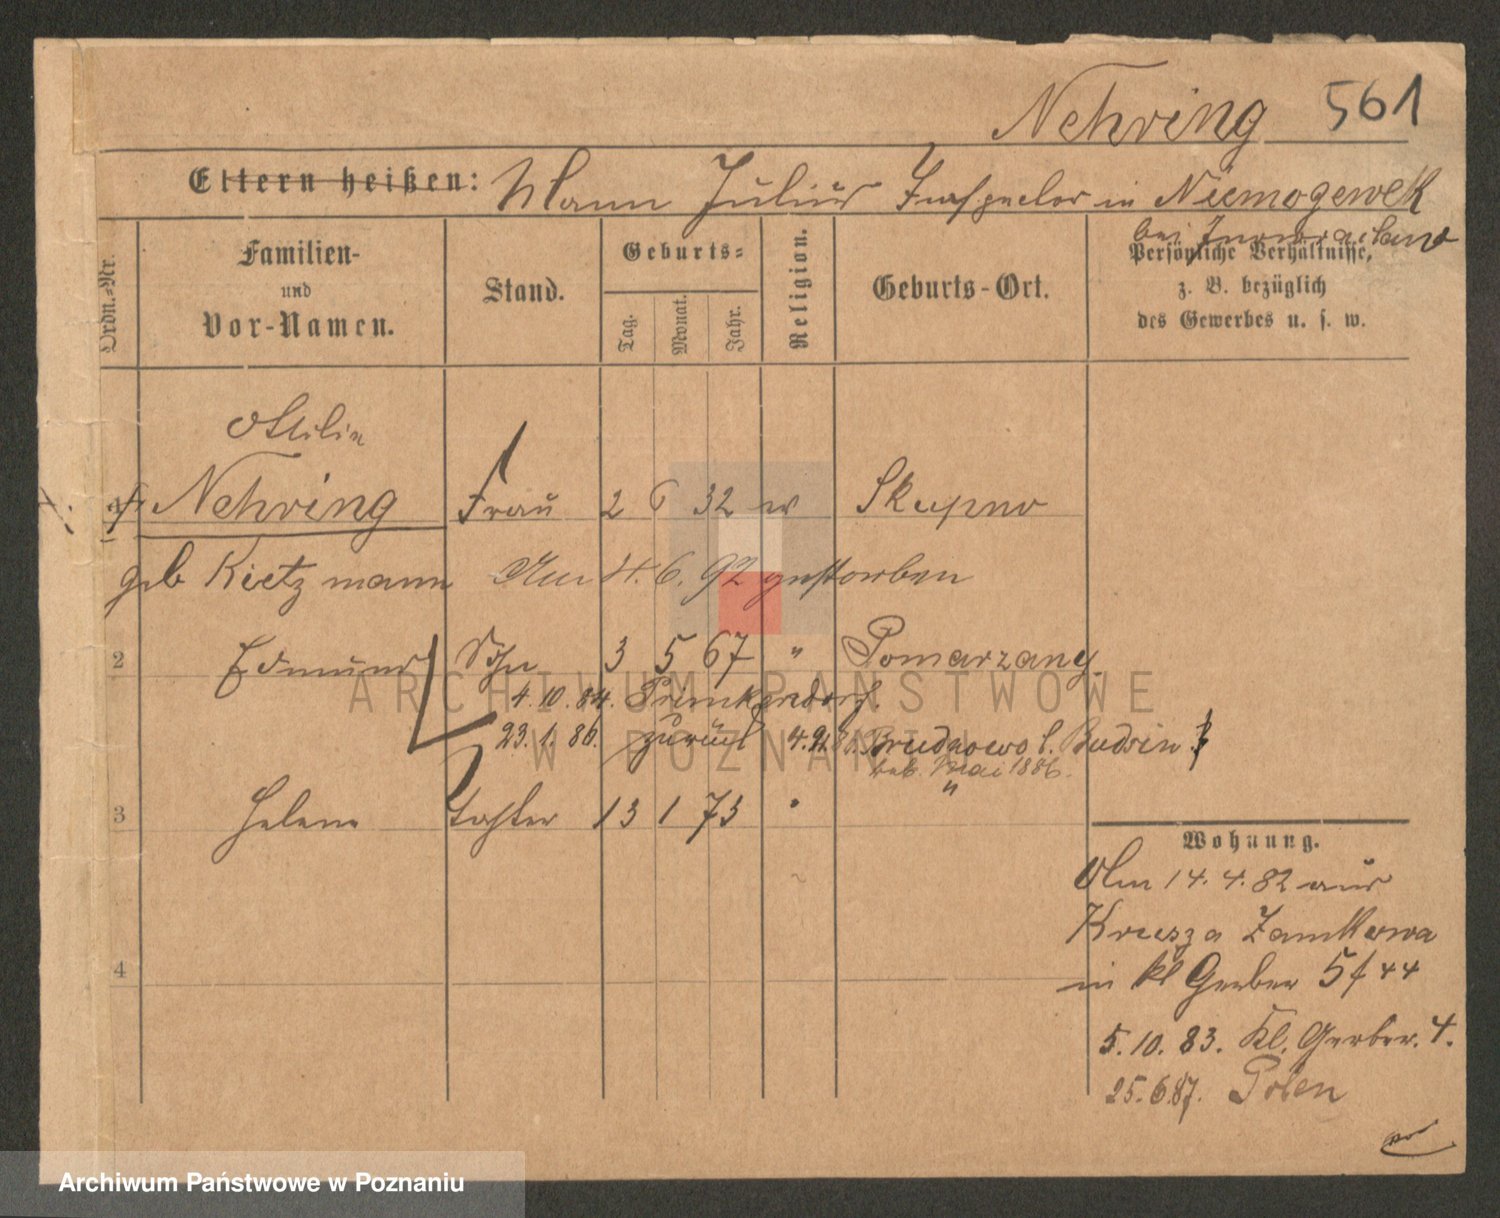 Nehring 561
Eltern heißen: Mann Julius Inspector in Niemogewek
bei Inowraclaw
Ordn.-Nr.
Familien-
und
Vor-Namen.
Stand.
Geburts-
Tag.
Monat.
Jahr.
Religion.
Geburts-Ort.
Persönliche Verhältnisse,
z. B. bezüglich
des Gewerbes u. s. w.
Ottilie
1 Nehring Frau 2 6 32 w Skupno
geb Kietzmann Am 4. 6. 92 gestorben
2 Edmund Sohn 3 5 67 " Pomarzany
4. 10. 84. Primkendorf.
23. 1. 86. zurück 4. Brudnowo b. Budsin
Mai 1886.
"
3 Helene Tochter 13 1 73
4
Wohnung.
Am 14. 4. 82 aus
Krusza Zamkowa
in kl Gerber 5 f 44
5. 10. 83. Kl. Gerber. 4.
25. 6. 87. Polen
ARCHIWUM PAŃSTWOWE
W POZNANIU
Archiwum Państwowe w Poznaniu